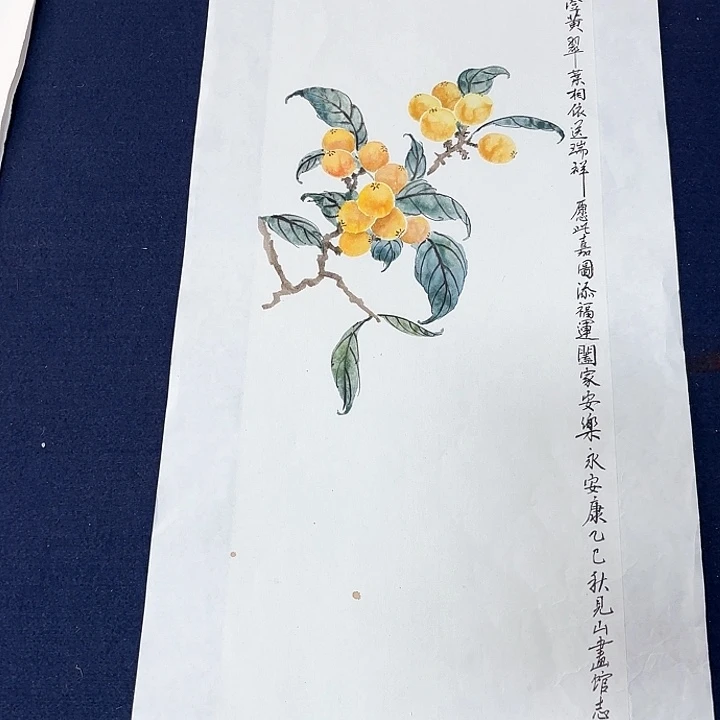 黄翠葉相依送瑞祥愿此嘉圖添福運闔家安樂永安康乙巳秋見山畫馆志